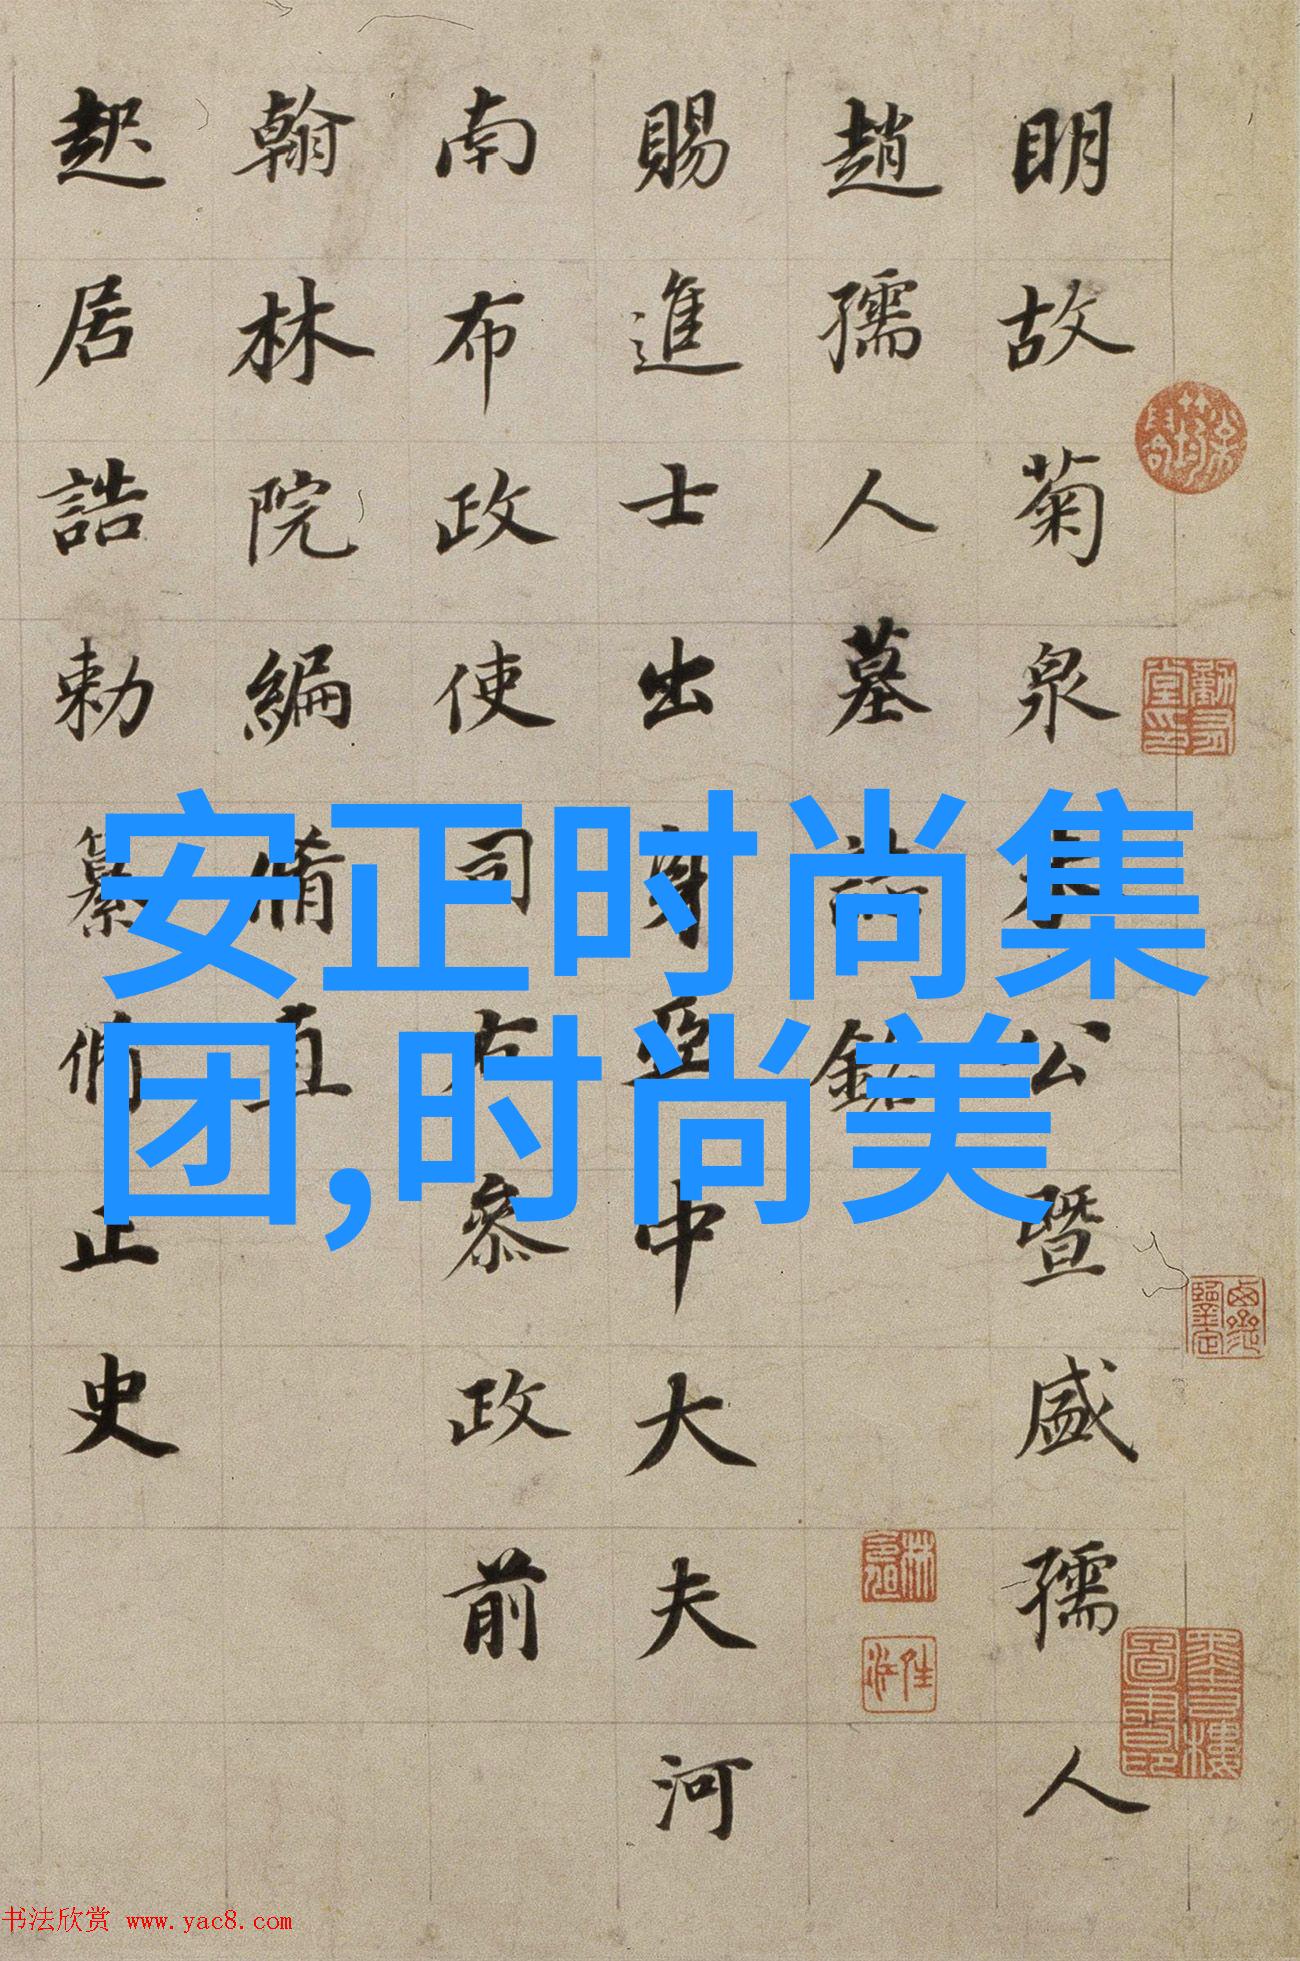 明故菊泉公暨盛孺人
趙孺人墓誌銘
賜進士出身亞中大夫河
南布政使司右叅政前
翰林院編脩直
起居誥勅纂脩正史
安正时尚集
团,时尚美
书法欣赏 www.yac8.com